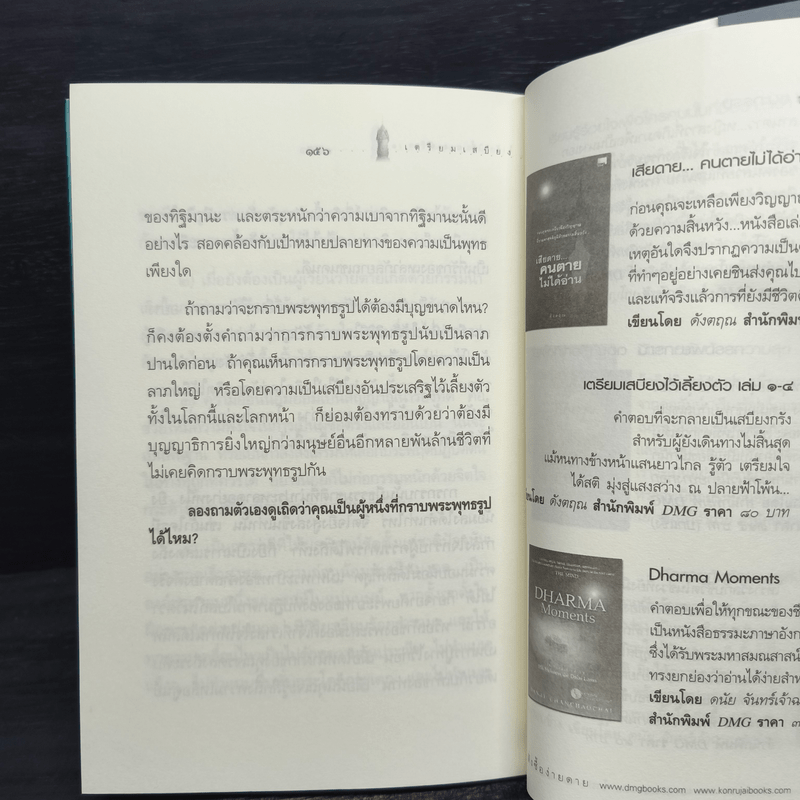 ๑๕๖
เตรียมเสบียง
ของทิฐิมานะ และตระหนักว่าความเบาจากทิฐิมานะนั้นดี
อย่างไร สอดคล้องกับเป้าหมายปลายทางของความเป็นพุทธ
เพียงใด
ถ้าถามว่าจะกราบพระพุทธรูปได้ต้องมีบุญขนาดไหน?
ก็คงต้องตั้งคำถามว่าการกราบพระพุทธรูปนับเป็นลาภ
ปานใดก่อน ถ้าคุณเห็นการกราบพระพุทธรูปโดยความเป็น
ลาภใหญ่ หรือโดยความเป็นเสบียงอันประเสริฐไว้เลี้ยงตัว
ทั้งในโลกนี้และโลกหน้า ก็ย่อมต้องทราบด้วยว่าต้องมี
บุญญาธิการยิ่งใหญ่กว่ามนุษย์อื่นอีกหลายพันล้านชีวิตที่
ไม่เคยคิดกราบพระพุทธรูปกัน
ลองถามตัวเองดูเถิดว่าคุณเป็นผู้หนึ่งที่กราบพระพุทธรูป
ได้ไหม?
เสียดาย...
คนตาย
ไม่ได้อ่าน
เสียดาย... คนตายไม่ได้อ่า
ก่อนคุณจะเหลือเพียงวิญญาณ
ด้วยความสิ้นหวัง...หนังสือเล่ม
เหตุอันใดจึงปรากฏความเป็น
ที่ทำๆอยู่อย่างเคยชินส่งคุณไป
และแท้จริงแล้วการที่ยังมีชีวิต
เขียนโดย ดังตฤณ สำนักพิมพ์
เตรียมเสบียงไว้เลี้ยงตัว เล่ม ๑-๔
คำตอบที่จะกลายเป็นเสบียงกรัง
สำหรับผู้ยังเดินทางไม่สิ้นสุด
แม้หนทางข้างหน้าแสนยาวไกล รู้ตัว เตรียมใจ
ได้สติ มุ่งสู่แสงสว่าง ณ ปลายฟ้าโพ้น...
โดย ดังตฤณ สำนักพิมพ์ DMG ราคา ๘๐ บาท
DHARMA
Moments
Dharma Moments
คำตอบเพื่อให้ทุกขณะของชี
เป็นหนังสือธรรมะภาษาอังก
ซึ่งได้รับพระมหาสมณสาสน์
ทรงยกย่องว่าอ่านได้ง่ายสำห
เขียนโดย ดนัย จันทร์เจ้าฉ
สำนักพิมพ์ DMG ราคา
ซื้อง่ายดาย www.dmgbooks.com www.konrujaibooks.com